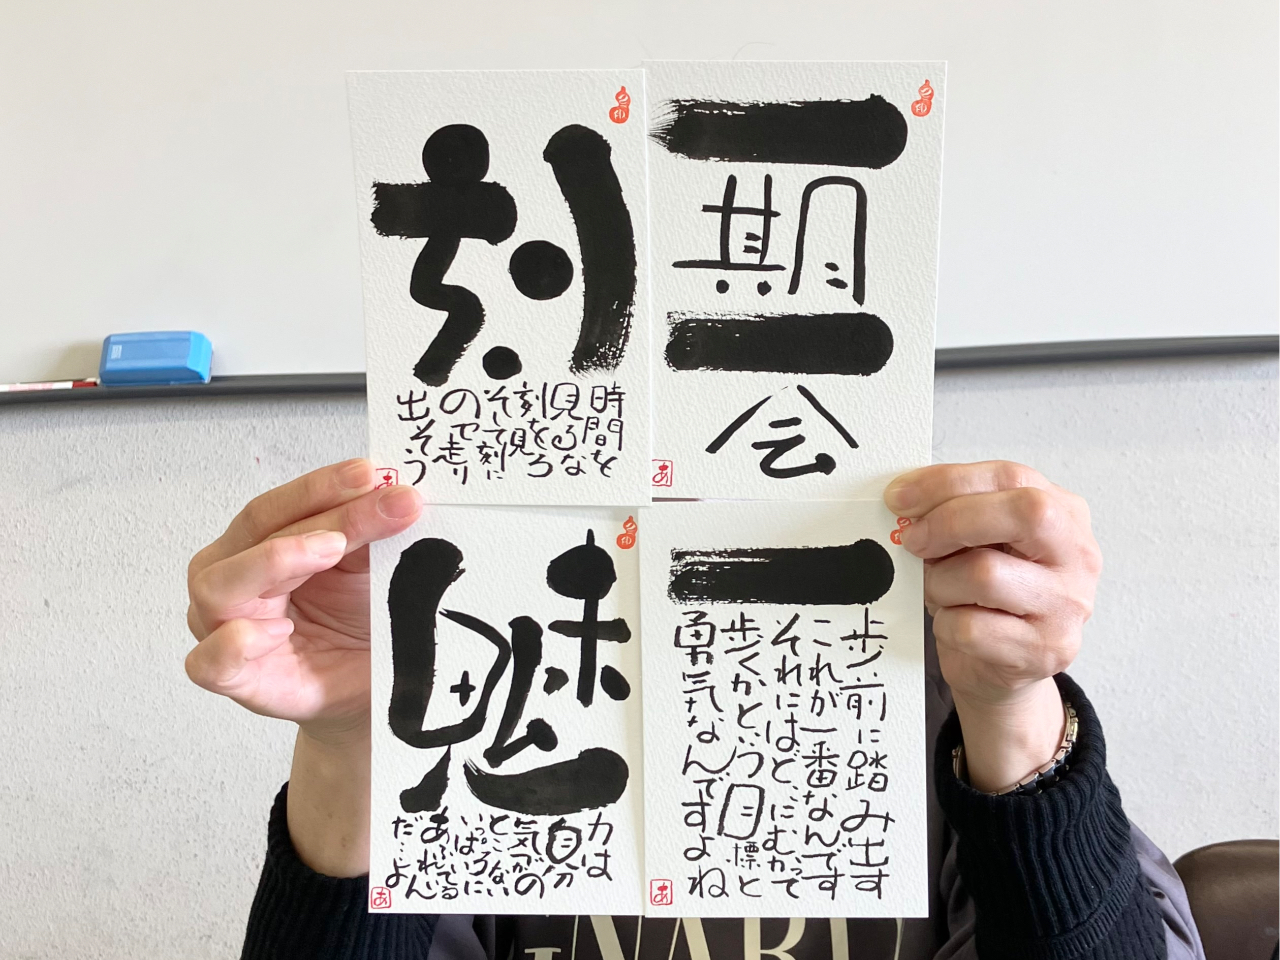 刻
時間を
見るな
刻を見ろ
そして刻に
ので走り
出そう
あ
一
期
一
会
あ
魅
力は
自分の
気づかない
ところに
いっぱい
あふれているん
だ…よ
あ
一
歩前に踏み出す
これが一番なんです
それにはどこにむかって
歩くかという目標と
勇気なんですよね
あ